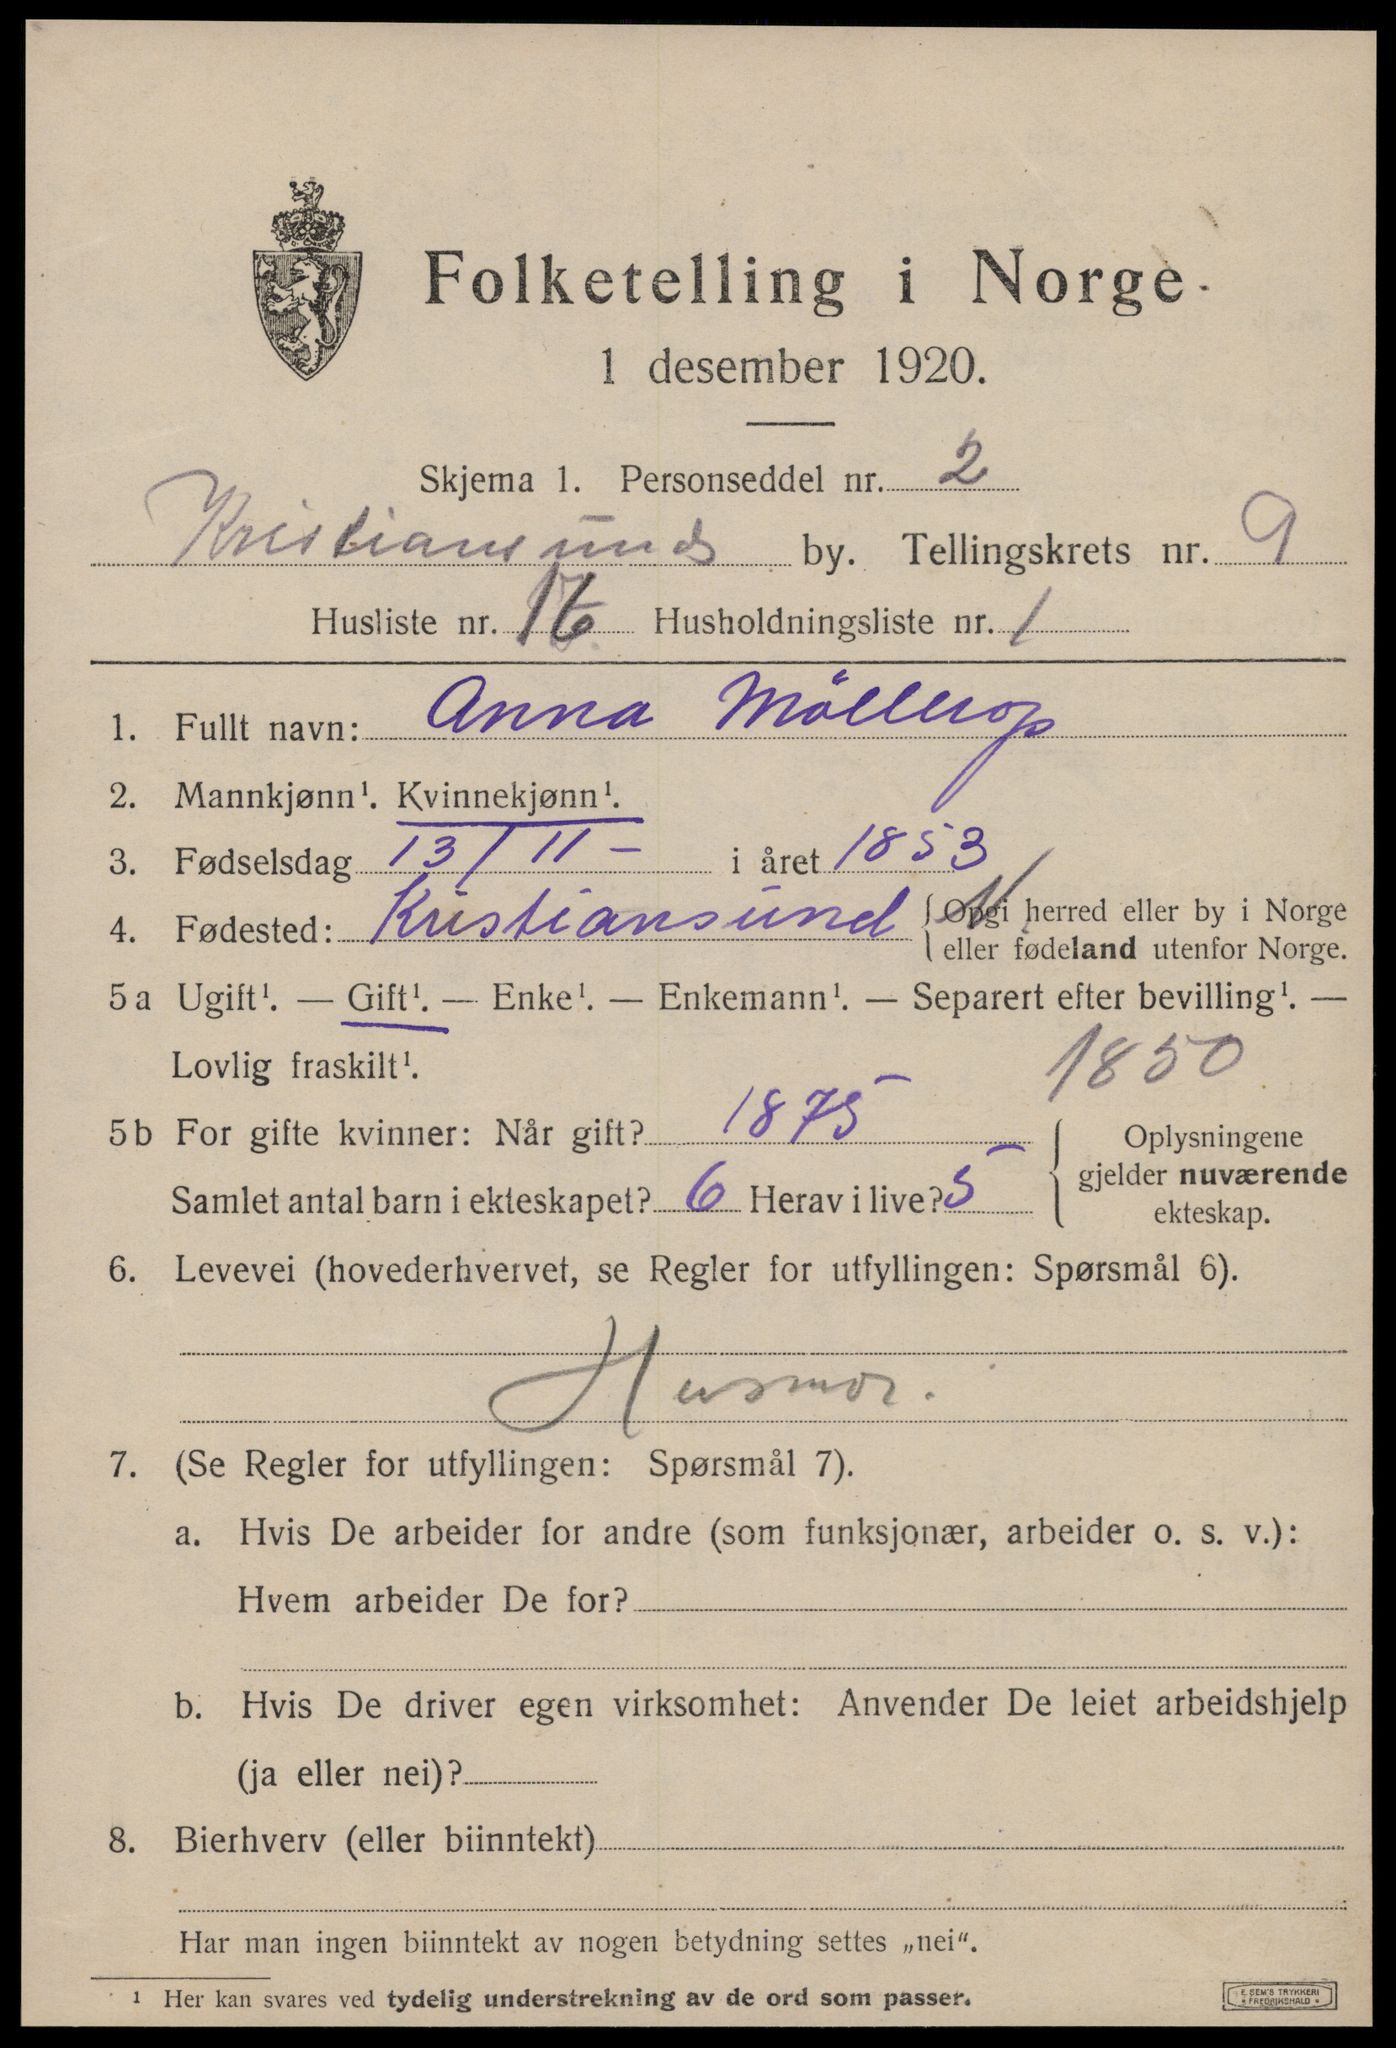 Folketelling i Norge
1 desember 1920.
Skjema 1. Personseddel nr. 2
Kristiansunds by. Tellingskrets nr. 9
Husliste nr. Husholdningsliste nr. 1
1. Fullt navn: Anna Möllerop
2. Mannkjønn¹. Kvinnekjønn¹.
3. Fødselsdag 13/11 – i året 1853
4. Fødested: Kristiansund N {Opgi herred eller by i Norge
eller fødeland utenfor Norge.
5a Ugift¹. — Gift¹. — Enke¹. — Enkemann¹. — Separert efter bevilling¹. —
Lovlig fraskilt¹. 1850
5b For gifte kvinner: Når gift? 1875
Samlet antal barn i ekteskapet? 6 Herav i live? 5
Oplysningene
gjelder nuværende
ekteskap.
6. Levevei (hovederhvervet, se Regler for utfyllingen: Spørsmål 6).
Husmor.
7. (Se Regler for utfyllingen: Spørsmål 7).
a. Hvis De arbeider for andre (som funksjonær, arbeider o. s. v.):
Hvem arbeider De for?
b. Hvis De driver egen virksomhet: Anvender De leiet arbeidshjelp
(ja eller nei)?
8. Bierhverv (eller biinntekt)
Har man ingen biinntekt av nogen betydning settes „nei“.
¹ Her kan svares ved tydelig understrekning av de ord som passer.
E. SEM'S TRYKKERI
FREDRIKSHALD